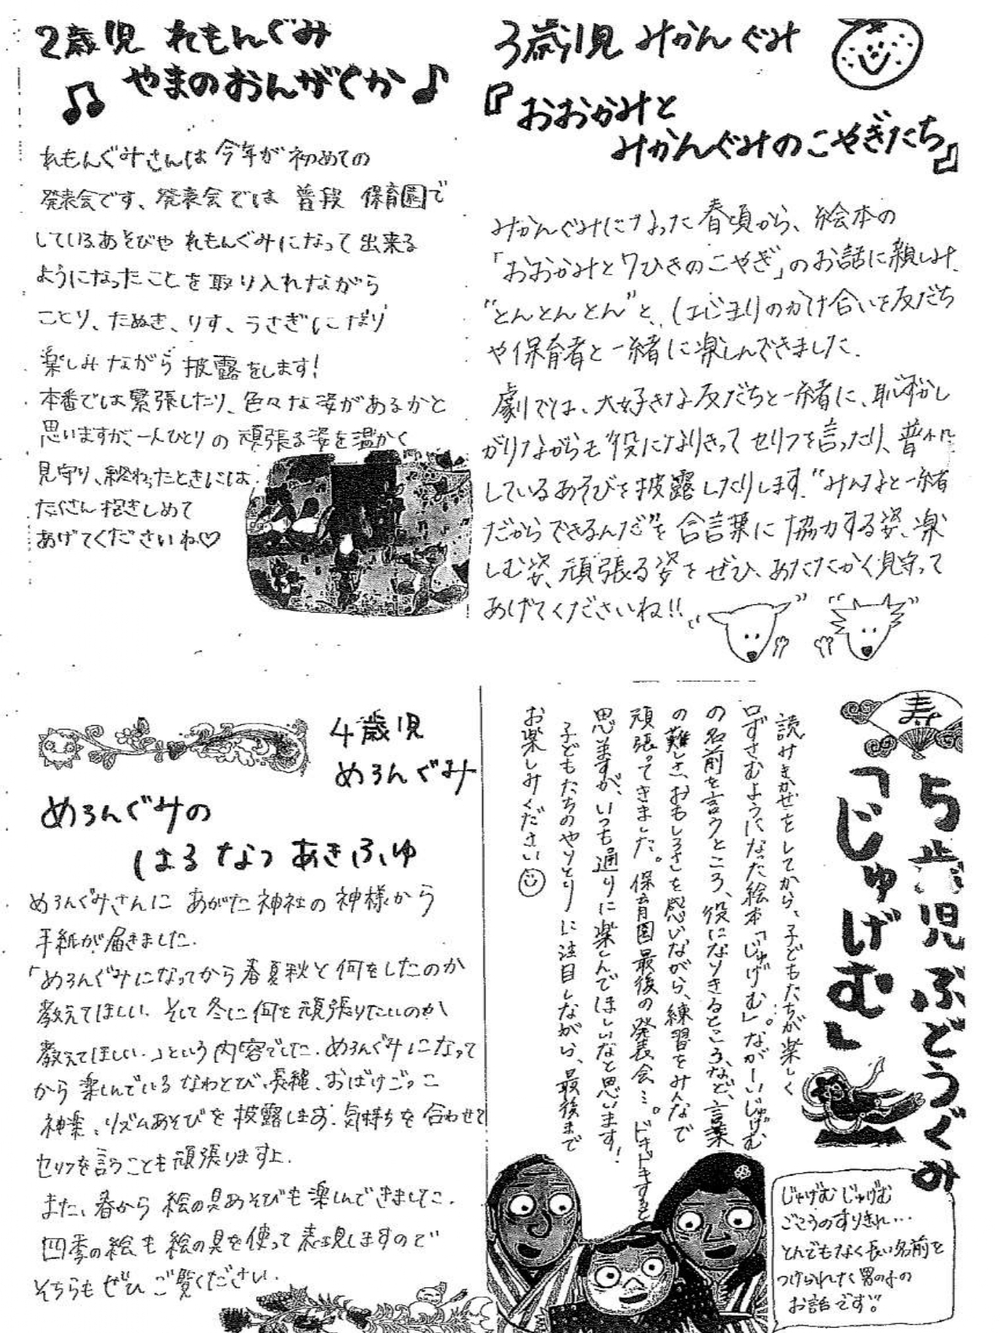 2歳児 れもんぐみ
やまのおんがくか
れもんぐみさんは今年が初めての
発表会です、発表会では 普段 保育園で
しているあそびや れもんぐみになって出来る
ようになったことを取り入れながら
ことり、たぬき、りす、うさぎになり
楽しみながら 披露をします!
本番では緊張したり、色々な姿があるかと
思いますが、一人ひとりの 頑張る姿を温かく
見守り、終わったときには
たくさん抱きしめて
あげてくださいね♡
3歳児 みかんぐみ
『おおかみと
みかんぐみのこやぎたち』
みかんぐみになった春頃から、絵本の
「おおかみと7ひきのこやぎ」のお話に親しみ、
"とんとんとん"と、はじまりのかけ合いを友だち
や保育者と一緒に楽しんできました。
劇では、大好きな友だちと一緒に、恥ずかし
がりながらも役になりきってセリフを言ったり、普段
しているあそびを披露したりします。"みんなと一緒
だからできるんだ"を合言葉に協力する姿、楽
しむ姿、頑張る姿をぜひ、あたたかく見守って
あげてくださいね!!
4歳児
めろんぐみ
めろんぐみの
はる なつ あき ふゆ
めろんぐみさんに あがた神社の神様から
手紙が届きました。
「めろんぐみになってから春夏秋と何をしたのか
教えてほしい。そして冬に何を頑張りたいのか
教えてほしい。」という内容でした。めろんぐみになって
から楽しんでいるなわとび、長縄、おばけごっこ
神楽、リズムあそびを披露します。気持ちを合わせて
セリフを言うことも頑張りますよ。
また、春から絵の具あそびも楽しんできました。
四季の絵も絵の具を使って表現しますので
そちらも ぜひ ご覧ください。
寿
5歳児 ぶどうぐみ
「じゅげむ」
読みきかせをしてから、子どもたちが楽しく
口ずさむようになった絵本「じゅげむ」。ながーいじゅげむ
の名前を言うところ、役になりきるところ、など、言葉
の難しさ、おもしろさを感いながら、練習をみんなで
頑張ってきました。保育園最後の発表会…。ドキドキすると
思いますが、いつも通りに楽しんでほしいなと思います!
子どもたちのやりとりに注目しながら、最後まで
お楽しみください
じゅげむ じゅげむ
ごこうのすりきれ…
とんでもなく長い名前を
つけられた男の子の
お話です!!